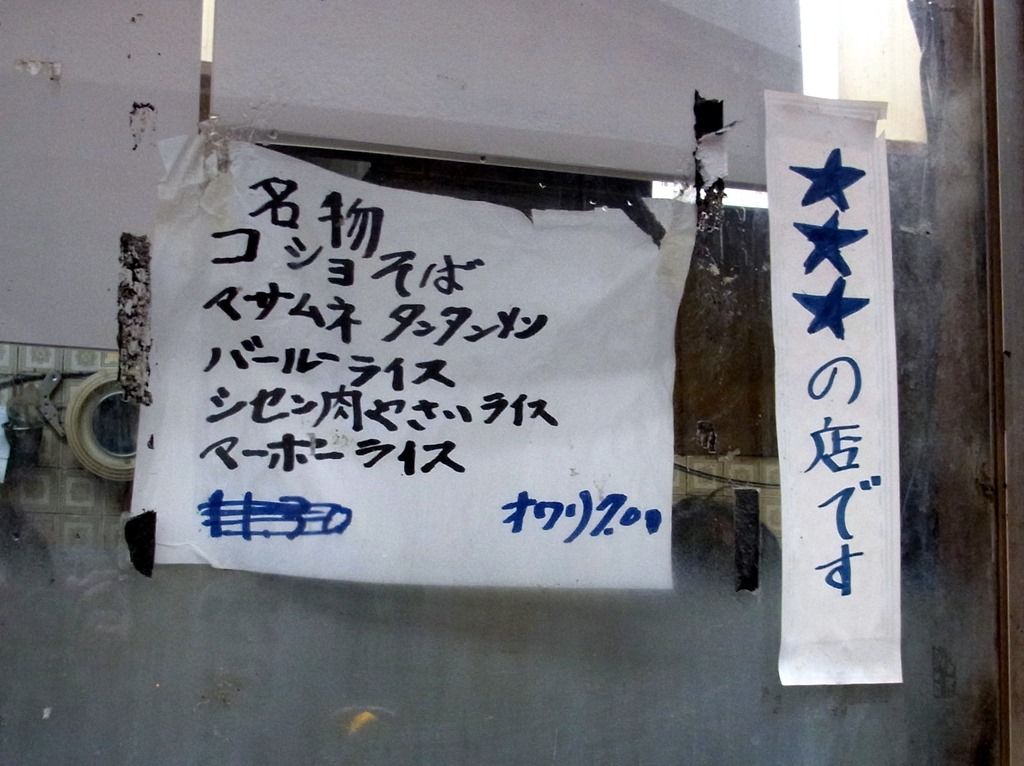 名物
コショそば
マサムネ タンタンメン
バールーライス
シセン肉やさいライス
マーボーライス
オワリ7.00
★★★の店です